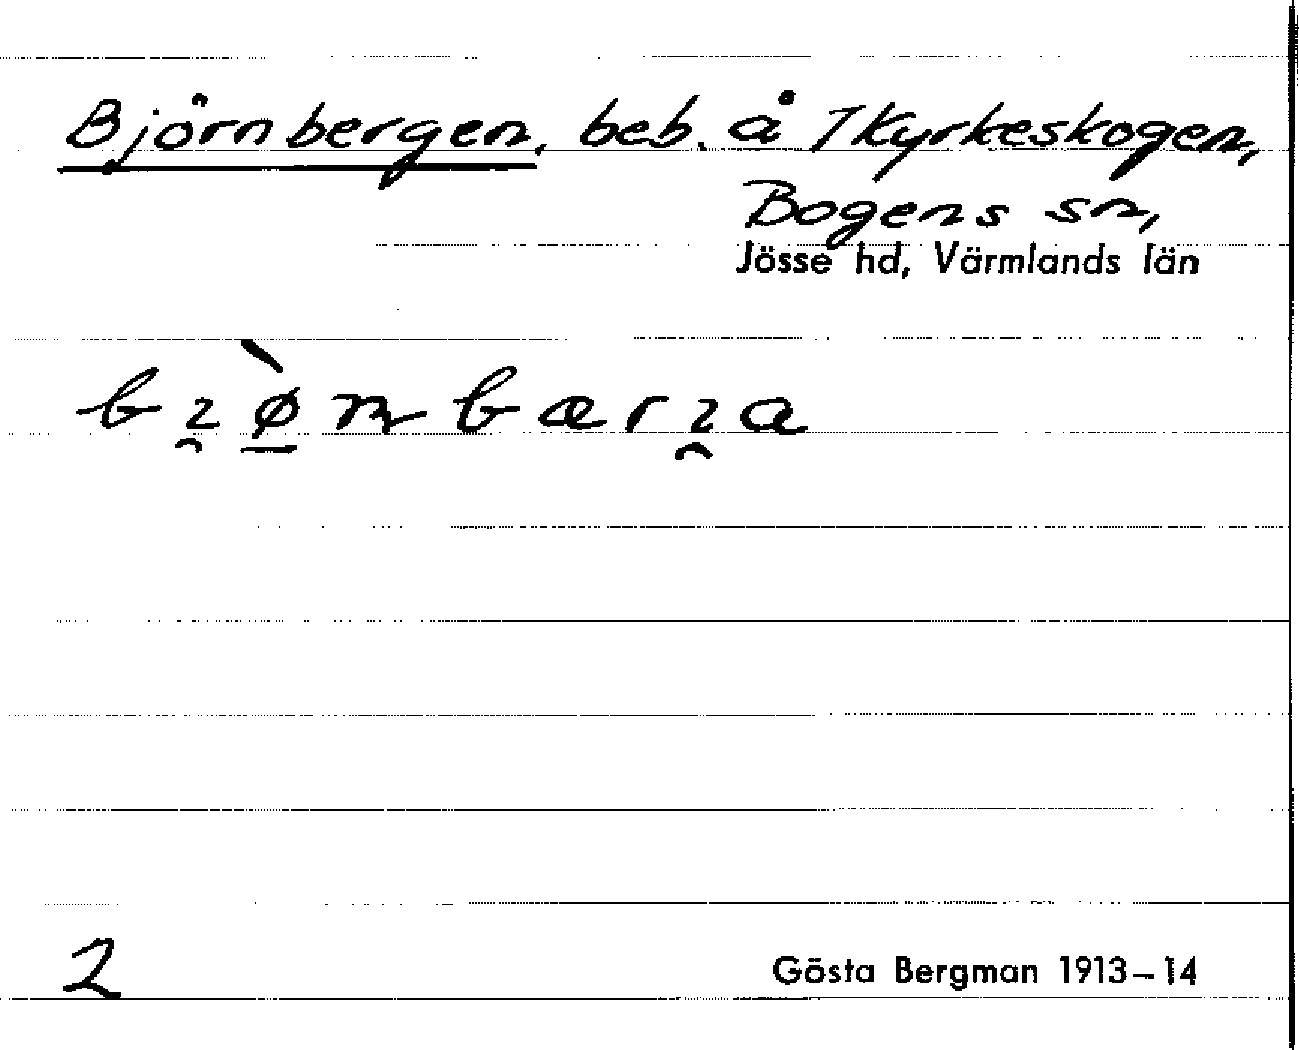 Björnbergen, beb. å 1 Kyrkeskogen,
Bogens sn,
Jösse hd, Värmlands län
2
Gösta Bergman 1913–14